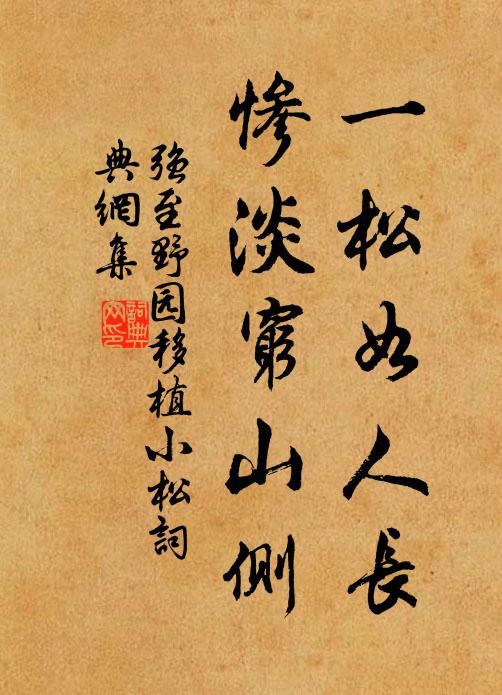 一松如人長
慘淡窮山側
强至野园移植小松詞
典網集
詞典网印